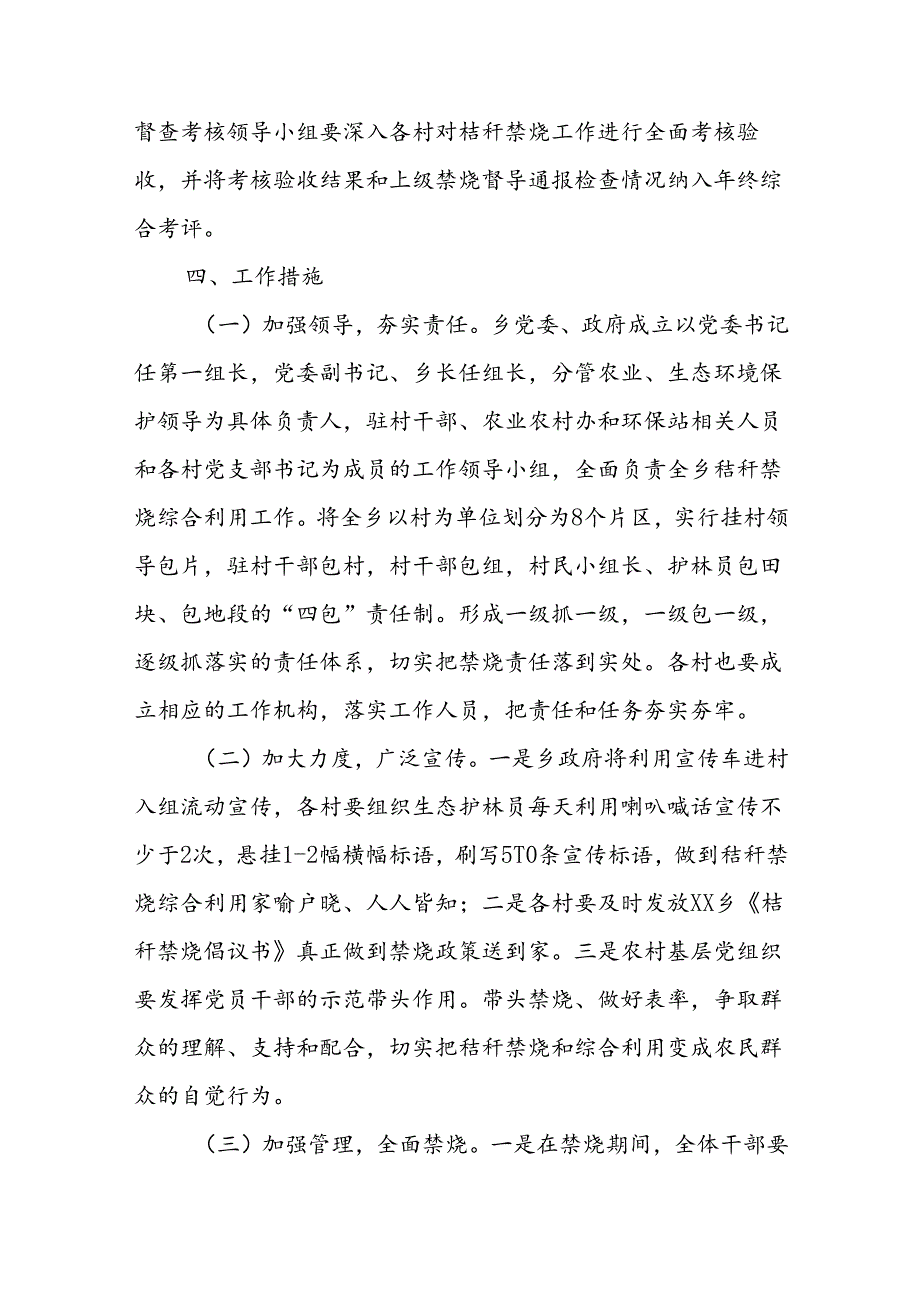 督查考核领导小组要深入各村对桔秆禁烧工作进行全面考核验
收，并将考核验收结果和上级禁烧督导通报检查情况纳入年终综
合考评。
四、工作措施
（一）加强领导，夯实责任。乡党委、政府成立以党委书记
任第一组长，党委副书记、乡长任组长，分管农业、生态环境保
护领导为具体负责人，驻村干部、农业农村办和环保站相关人员
和各村党支部书记为成员的工作领导小组，全面负责全乡秸秆禁
烧综合利用工作。将全乡以村为单位划分为8个片区，实行挂村领
导包片，驻村干部包村，村干部包组，村民小组长、护林员包田
块、包地段的“四包”责任制。形成一级抓一级，一级包一级，
逐级抓落实的责任体系，切实把禁烧责任落到实处。各村也要成
立相应的工作机构，落实工作人员，把责任和任务夯实夯牢。
（二）加大力度，广泛宣传。一是乡政府将利用宣传车进村
入组流动宣传，各村要组织生态护林员每天利用喇叭喊话宣传不
少于2次，悬挂1-2幅横幅标语，刷写5T0条宣传标语，做到秸秆禁
烧综合利用家喻户晓、人人皆知；二是各村要及时发放XX乡《桔
秆禁烧倡议书》真正做到禁烧政策送到家。三是农村基层党组织
要发挥党员干部的示范带头作用。带头禁烧、做好表率，争取群
众的理解、支持和配合，切实把秸秆禁烧和综合利用变成农民群
众的自觉行为。
（三）加强管理，全面禁烧。一是在禁烧期间，全体干部要